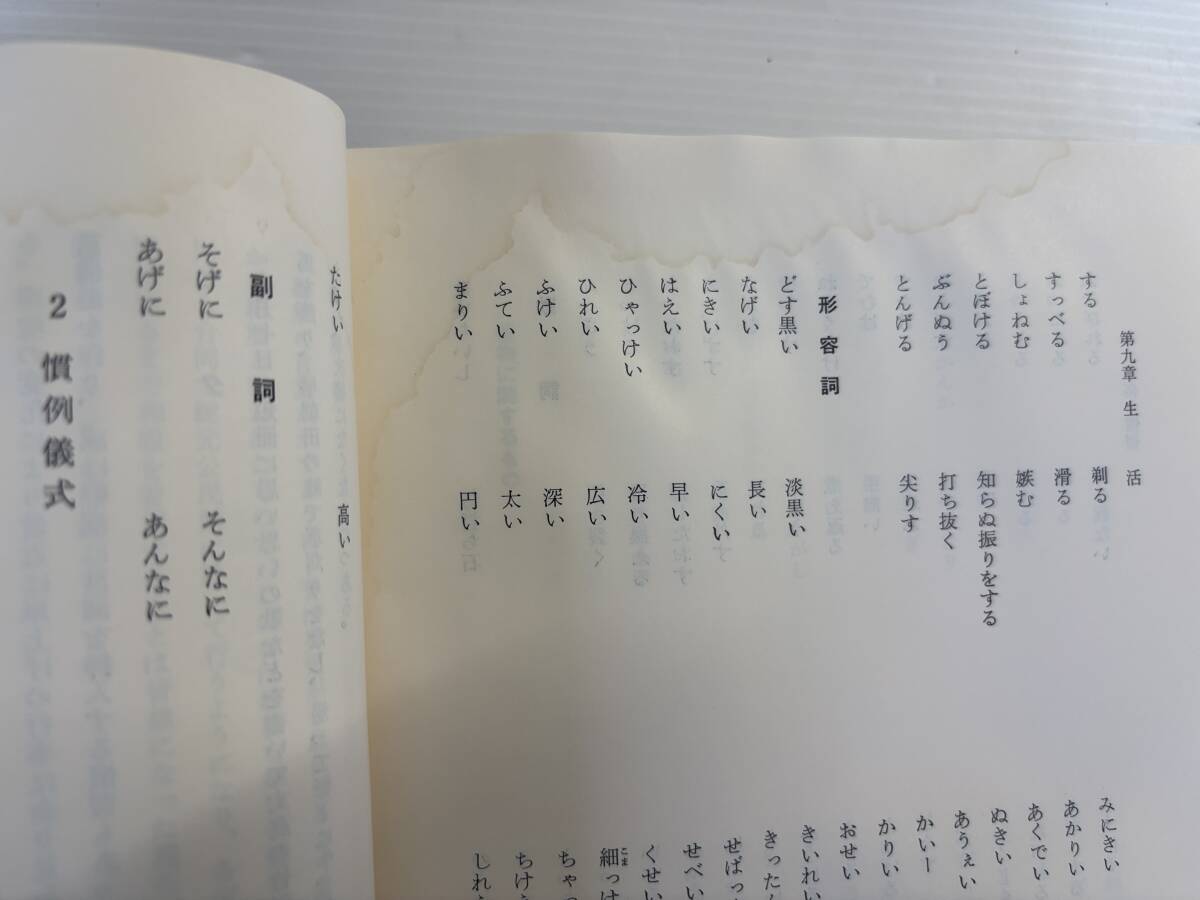 第九章 生活
する 剃る
すっべる 滑る
しょねむ 嫉む
とぼける 知らぬ振りをする
ぶんぬう 打ち抜く
とんげる 尖りす
形容詞
どす黒い 淡黒い
なげい 長い
にきい にくい
はえい 早い
ひゃっけい 冷い
ひれい 広い
ふけい 深い
ふてい 太い
まりい 円い
みにきい
あかりい
あくでい
ぬきい
あうぇい
かいー
かりい
おせい
きいれい
きったん
せばっ
せべい
くせい
細っけ
こま
ちゃっ
ちけ
しれ
たけい 高い
副詞
そげに そんなに
あげに あんなに
2 慣例儀式